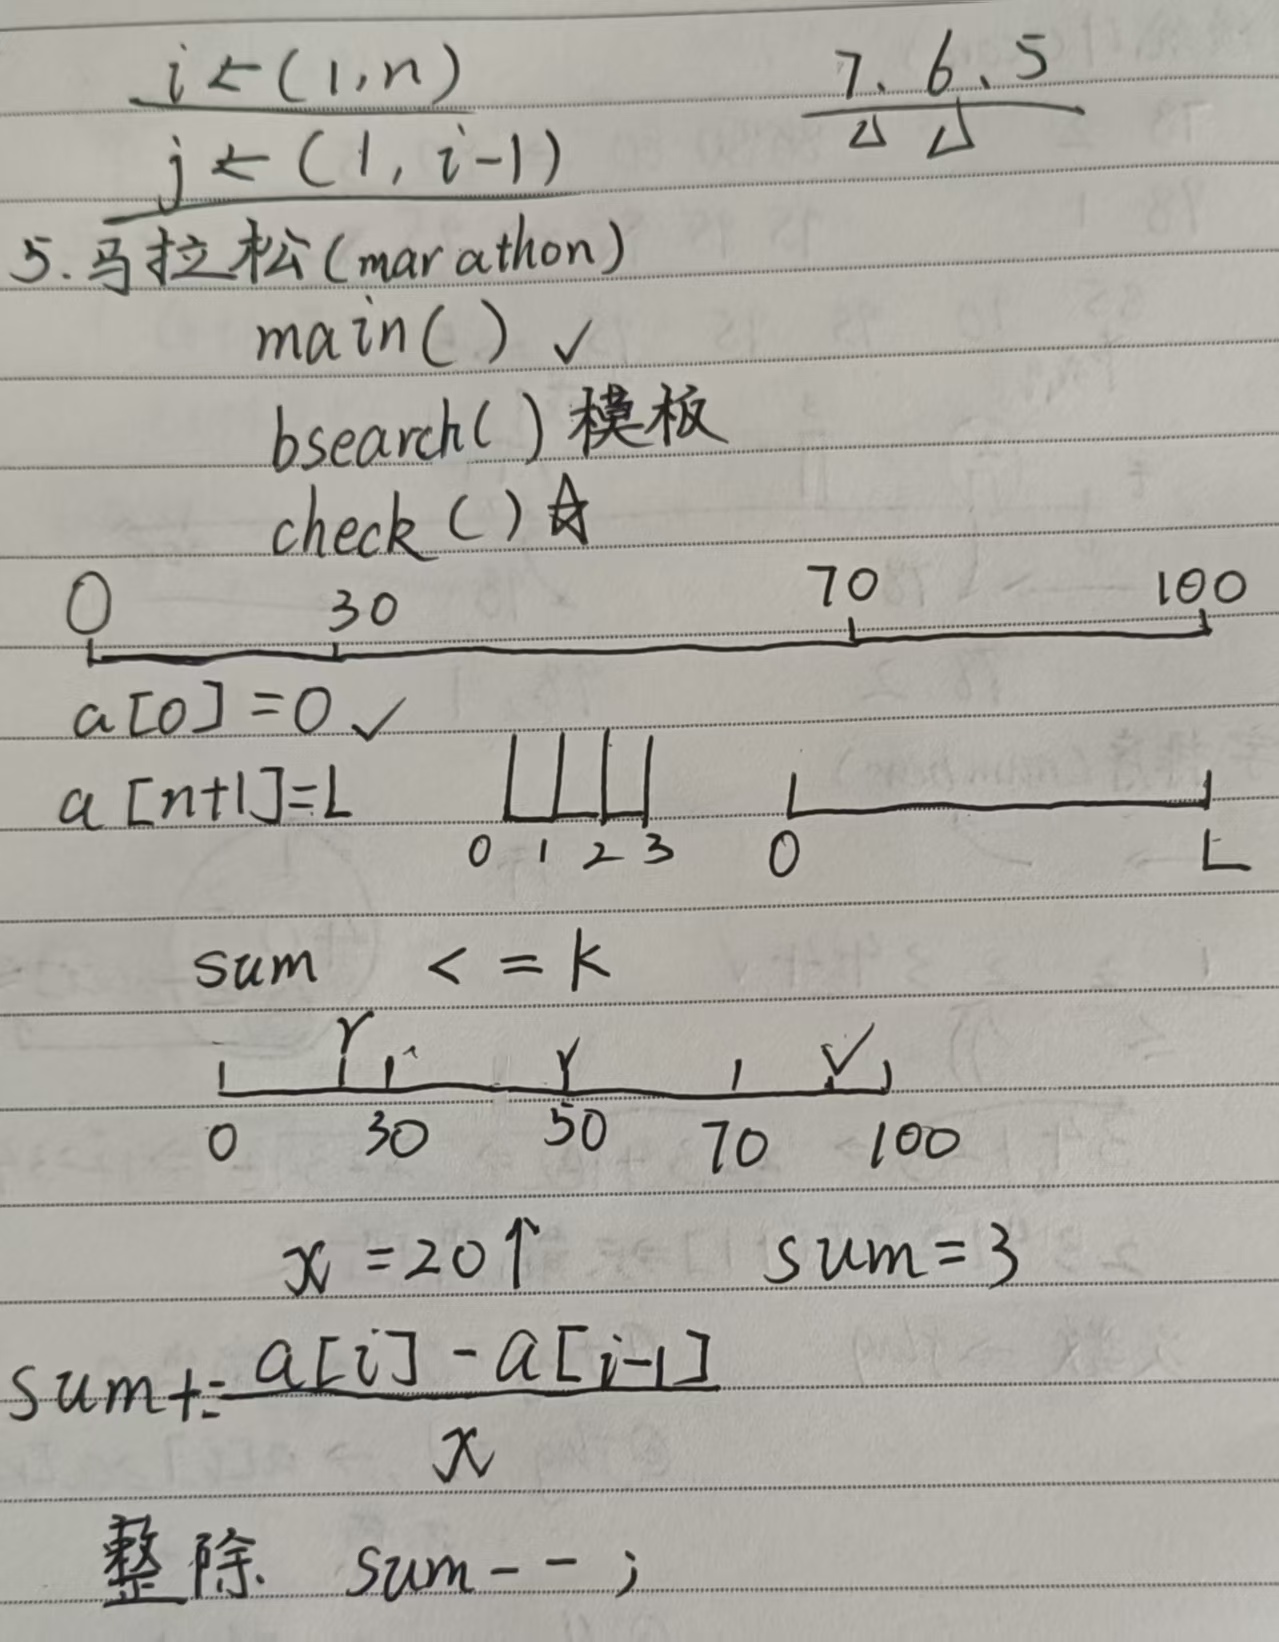 i ← (1,n)
7、6、5
j ← (1, i-1)
5.马拉松(marathon)
main() ✓
bsearch()模板
check()☆
0 30 70 100
a[0]=0 ✓
a[n+1]=L
0 1 2 3
0 L
sum <= k
0 30 50 70 100
x=20↑ sum=3
sum+= a[i]-a[i-1]
x
整除 sum--;